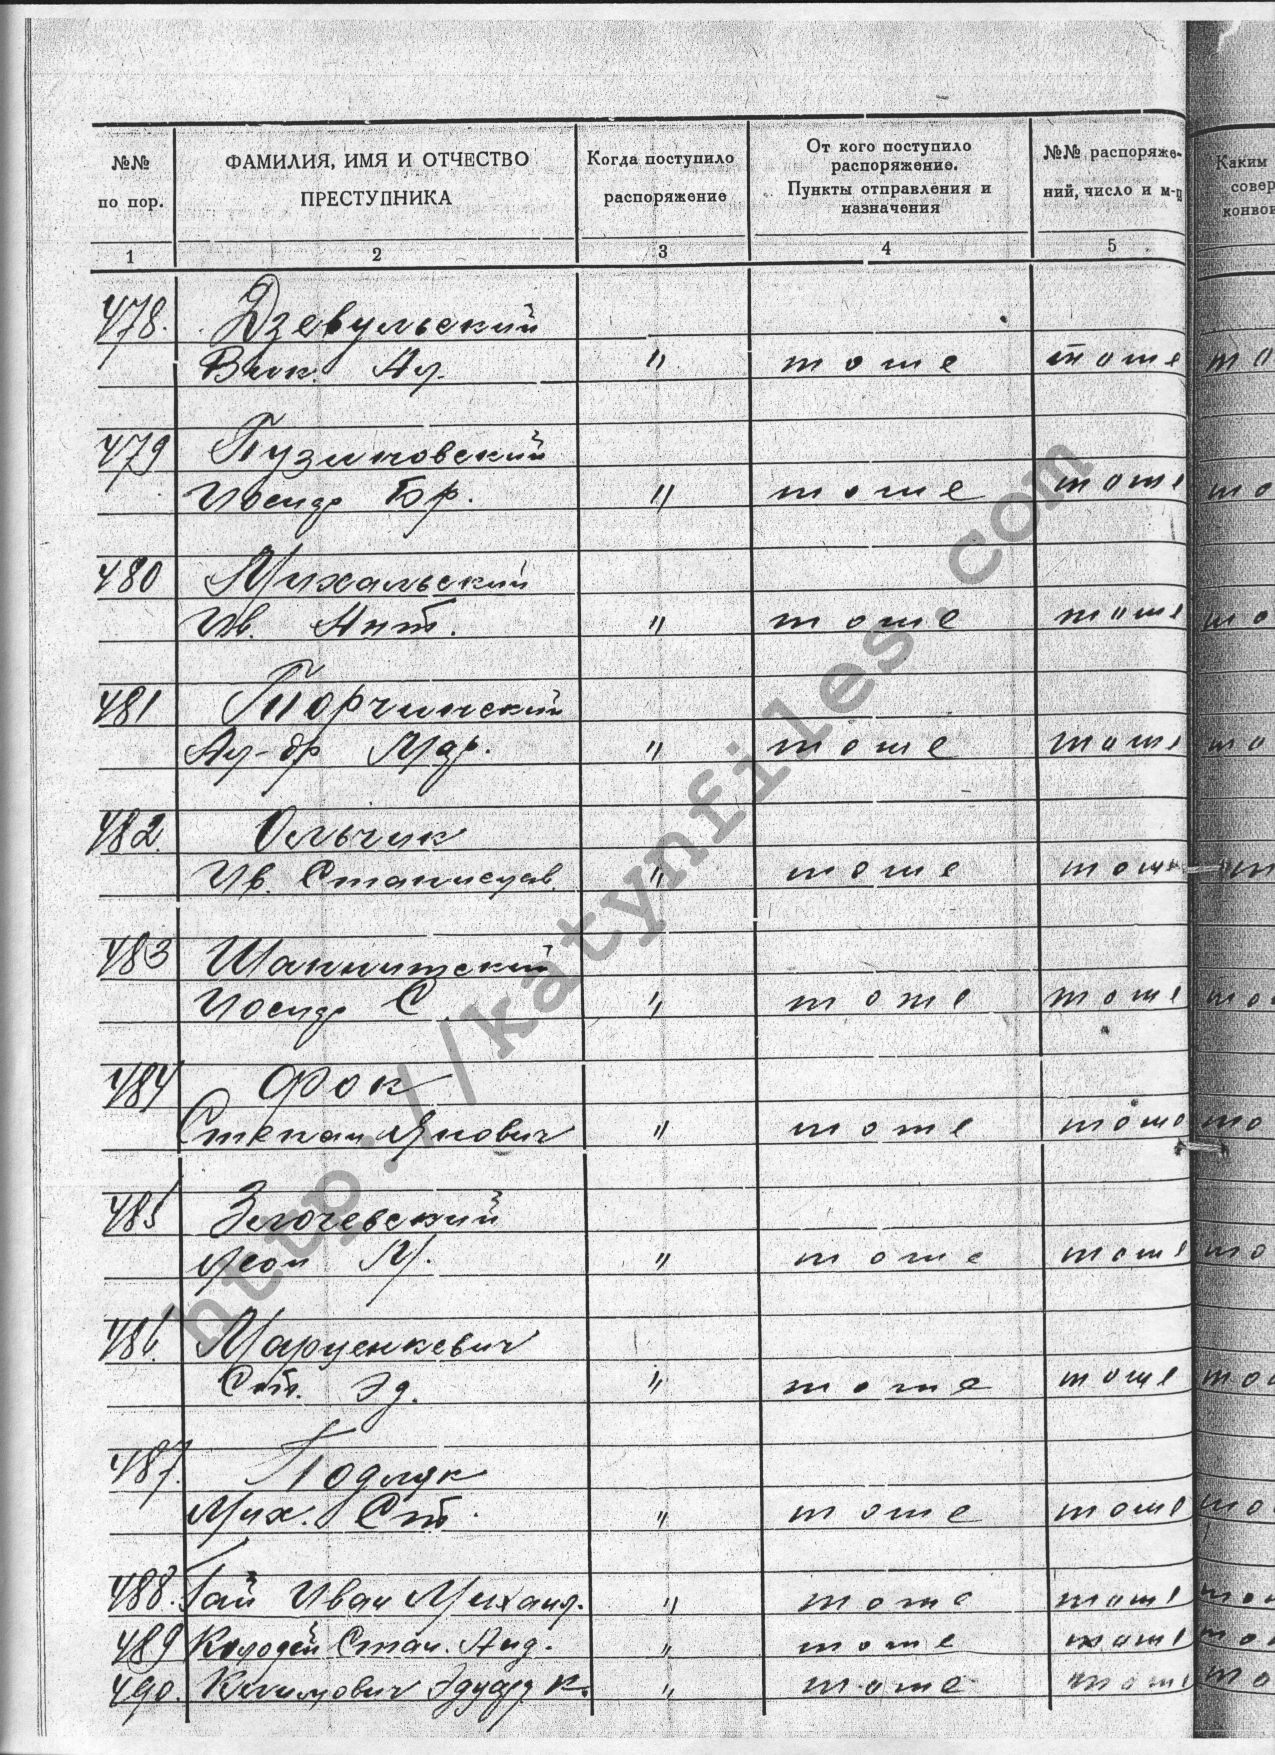 №№ по пор. ФАМИЛИЯ, ИМЯ И ОТЧЕСТВО ПРЕСТУПНИКА Когда поступило распоряжение От кого поступило распоряжение. Пункты отправления и назначения №№ распоряже-ний, число и м-ц Каким совер конвои
1 2 3 4 5
478. Дзевульский
Вик. Ал. " тоже тоже то
479 Пузиновский
Иосиф Бр. " тоже тоже то
480 Михальский
Ив. Ант. " тоже тоже то
481 Торчинский
Ал-др М " тоже тоже то
482. Ольчик
Ив. Станислав. " тоже тоже т
483 Шакнитский
Иосиф С. " тоже тоже тож
484 Фок
Степан Янович " тоже тоже то
485 Злочевский
Леон М. " тоже тоже то
486. Марценкевич
Ст. Эд. " тоже тоже тож
487. Подляк
Мих. Ст. " тоже тоже то
488. Гай Иван Михаил. " тоже тоже тож
489 Колодей Стан. Анд. " тоже тоже тож
490. Климович Эдуард К. " тоже тоже то
http://katynfiles.com